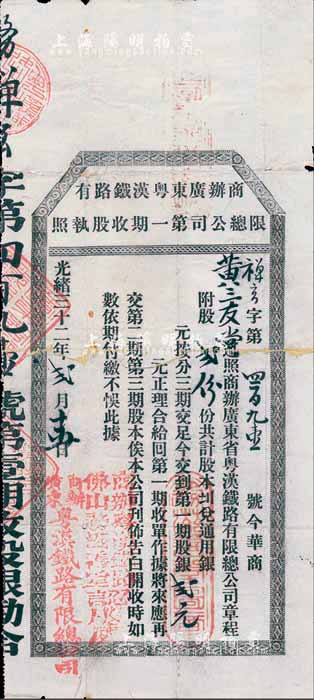 上海陽明拍賣
商辦廣東粤漢鐵路有
限總公司第一期收股執照
禅字第 四百九 號今華商
黄三友堂遵照商辦廣東省粤漢鐵路有限總公司章程
附股 弍份 份共計股本 到兌通用銀
元按分三期交足今交到第一期股銀 弍元
元正理合給回第一期收單作據將來應再
交第二期第三期股本俟本公司刊佈告白開收時如
數依期付繳不悞此據
光緒三十二年 弍 月 日
商辦廣東
粤漢鐵路有限總公司
佛山
字第四百九 號第壹期收股銀勘合